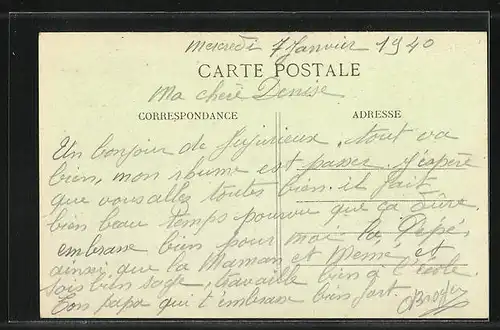 Mercredi 7 Janvier 1940
CARTE POSTALE
Ma chère Denise
CORRESPONDANCE
ADRESSE
Un bonjour de Jujurieux, tout va
bien, mon rhume est passer. J'éspère
que vous allez toutes bien. il fait
bien beau temps pourvu que ça dûre.
embrasse bien pour moi la Pépé,
ainsi que la Maman et Mémé, et
sois bien sage, travaille bien à l'école.
Ton papa qui t'embrasse bien fort.